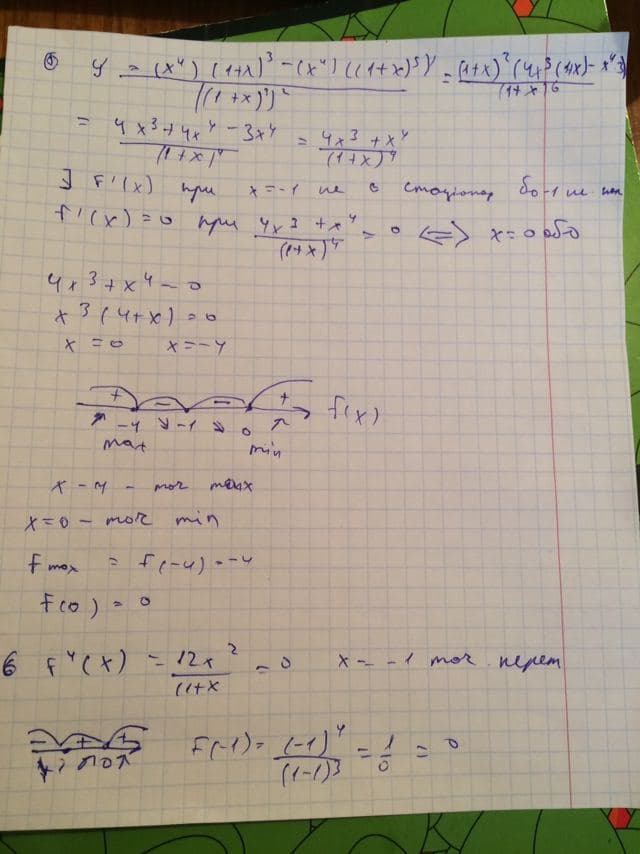 5) y' = (x⁴) (1+x)³ - (x⁴) ((1+x)³)' / ((1+x)³)² = (1+x)² (4x³(1+x) - x⁴3) / (1+x)⁶
= 4x³+4x⁴-3x⁴ / (1+x)⁴ = 4x³+x⁴ / (1+x)⁴
∃ F'(x) при x=-1 не є стаціонар бо -1 не
F'(x)=0 при 4x³+x⁴ / (1+x)⁴ = 0 ⟺ x=0 або
4x³+x⁴=0
x³(4+x)=0
x=0 x=-4
+ - - + F(x)
↗ -4 ↘ -1 ↘ 0 ↗
max min
x-4 - точ max
x=0 - точ min
Fmax = F(-4)=-4
F(0)=0
6 F"(x) = 12x² / (1+x = 0 x=-1 точ. перет
- + +
F(-1)= (-1)⁴ / (1-1)³ = 1/0 = 0